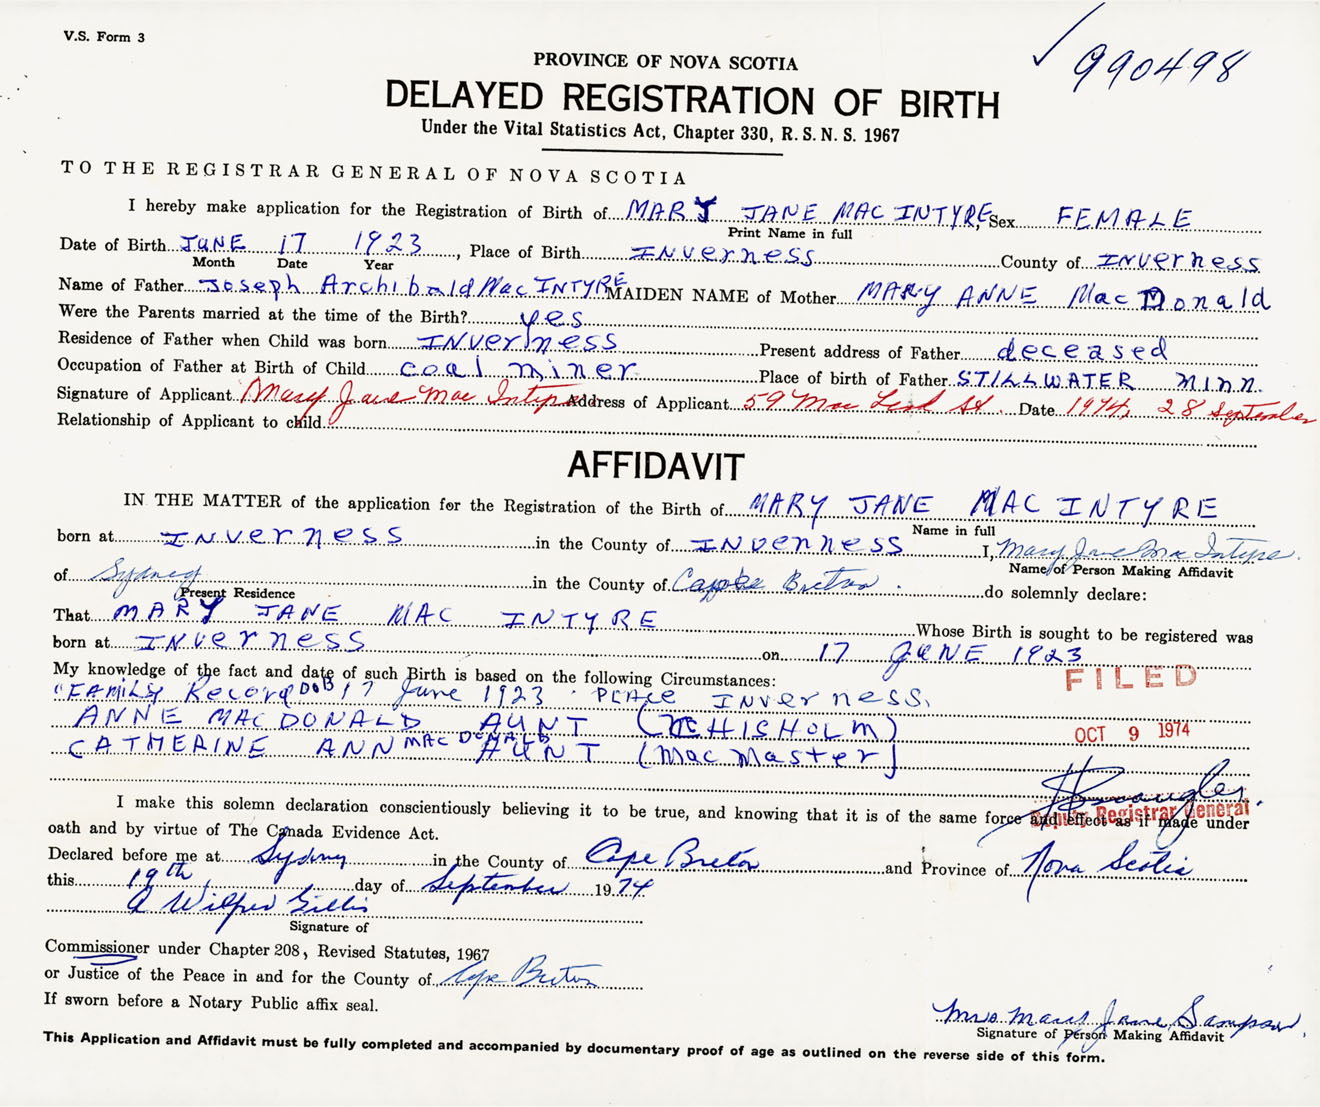 V.S. Form 3
990498
PROVINCE OF NOVA SCOTIA
DELAYED REGISTRATION OF BIRTH
Under the Vital Statistics Act, Chapter 330, R. S. N. S. 1967
TO THE REGISTRAR GENERAL OF NOVA SCOTIA
I hereby make application for the Registration of Birth of MARY JANE MAC INTYRE, Sex FEMALE
Print Name in full
Date of Birth JUNE 17 1923, Place of Birth INVerness County of INVerness
Month Date Year
Name of Father Joseph Archibald Mac INTYRE MAIDEN NAME of Mother MARY ANNE MacDonald
Were the Parents married at the time of the Birth? yes
Residence of Father when Child was born INVerness Present address of Father deceased
Occupation of Father at Birth of Child coal miner Place of birth of Father STILLWATER MINN.
Signature of Applicant Mary Jane Mac Intyre Address of Applicant 59 Mac Leod St. Date 1974, 28 September
Relationship of Applicant to child
AFFIDAVIT
IN THE MATTER of the application for the Registration of the Birth of MARY JANE MAC INTYRE
Name in full
born at INVerness in the County of INVerNess I, Mary Jane Mac Intyre
Name of Person Making Affidavit
of Sydney in the County of Cape Breton. do solemnly declare:
Present Residence
That MARY JANE MAC INTYRE Whose Birth is sought to be registered was
born at INVerness on 17 JUNE 1923
My knowledge of the fact and date of such Birth is based on the following Circumstances:
"FAMILY Record DOB 17 June 1923 . PLACE INVerness.
FILED
ANNE MACDONALD AUNT (CHISHOLM)
OCT 9 1974
CATHERINE ANN MACDONALD AUNT (MacMaster)
I make this solemn declaration conscientiously believing it to be true, and knowing that it is of the same force and effect as if made under
Deputy Registrar General
oath and by virtue of The Canada Evidence Act.
Declared before me at Sydney in the County of Cape Breton and Province of Nova Scotia
this 19th day of September 1974
A Wilfred Gillis
Signature of
Commissioner under Chapter 208, Revised Statutes, 1967
or Justice of the Peace in and for the County of Cape Breton
If sworn before a Notary Public affix seal.
Mrs Mary Jane Sampson.
Signature of Person Making Affidavit
This Application and Affidavit must be fully completed and accompanied by documentary proof of age as outlined on the reverse side of this form.